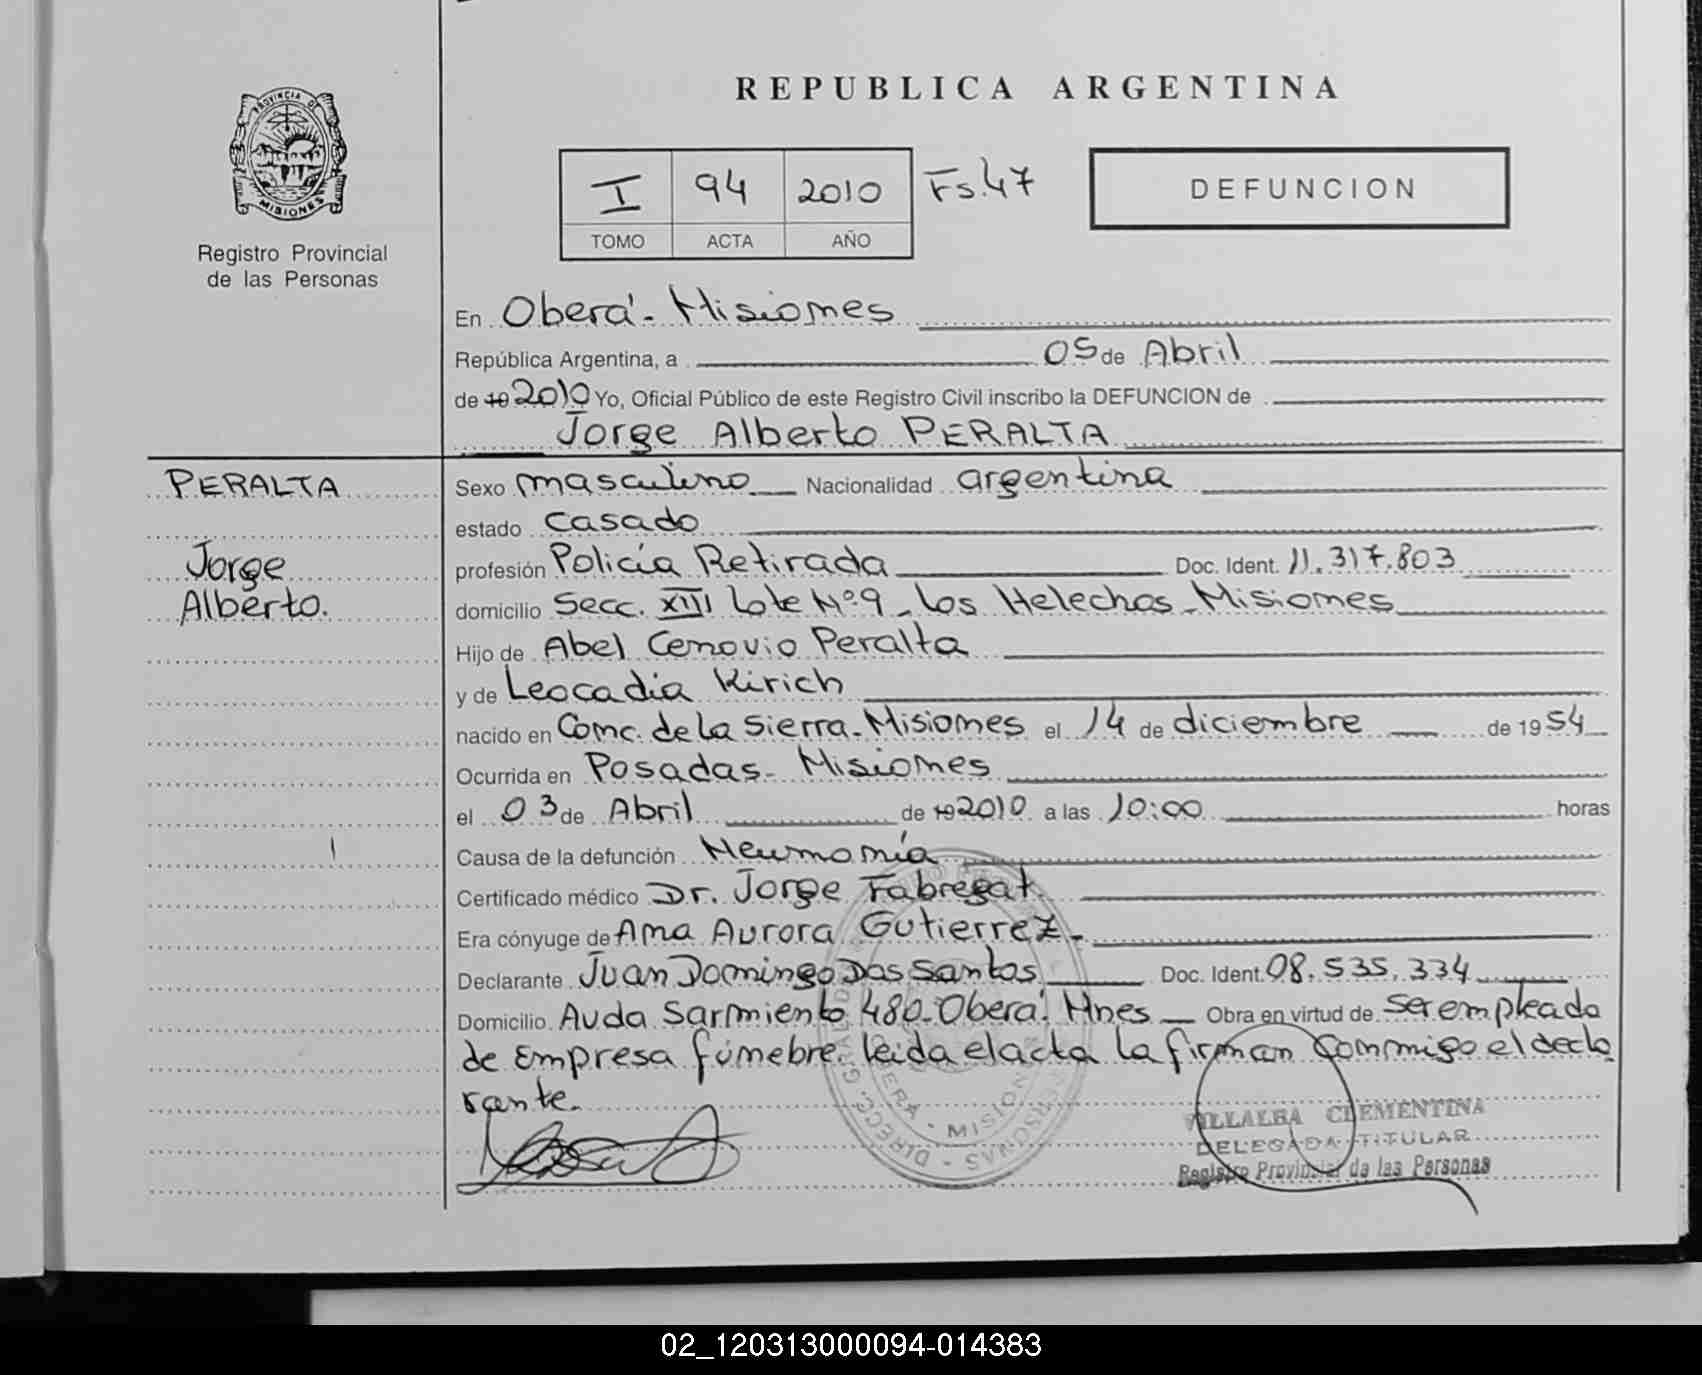 REPUBLICA ARGENTINA
PROVINCIA DE
MISIONES
Registro Provincial
de las Personas
I 94 2010 Fs.47
TOMO ACTA AÑO
DEFUNCION
En Oberá - Misiones
República Argentina, a 05 de Abril
de 19 2010 Yo, Oficial Público de este Registro Civil inscribo la DEFUNCION de
Jorge Alberto PERALTA
PERALTA
Jorge
Alberto.
Sexo masculino Nacionalidad argentina
estado casado
profesión Policía Retirada Doc. Ident. 11.317.803
domicilio Secc. XIII Lote Nº 9 - Los Helechos - Misiones
Hijo de Abel Cenovio Peralta
y de Leocadia Kirich
nacido en Conc. de La Sierra - Misiones el 14 de diciembre de 1954
Ocurrida en Posadas - Misiones
el 03 de Abril de 19 2010 a las 10:00 horas
Causa de la defunción Neumonía
Certificado médico Dr. Jorge Fabregat
Era cónyuge de Ana Aurora Gutierrez -
Declarante Juan Domingo Dos Santos Doc. Ident. 08.535.334
Domicilio Avda Sarmiento 480 - Oberá. Mnes Obra en virtud de ser empleado
de Empresa fúnebre. leida el acta la firman conmigo el decla
rante.
VILLALBA CLEMENTINA
DELEGADA TITULAR
Registro Provincial de las Personas
02_120313000094-014383